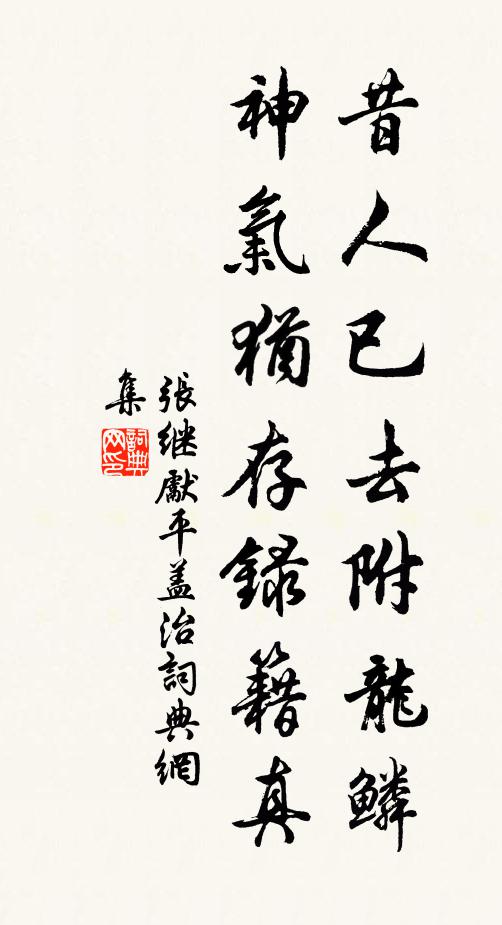 昔人已去附龍鱗
神氣猶存録籍真
張继獻平蓋治詞典網
集
詞典
网印